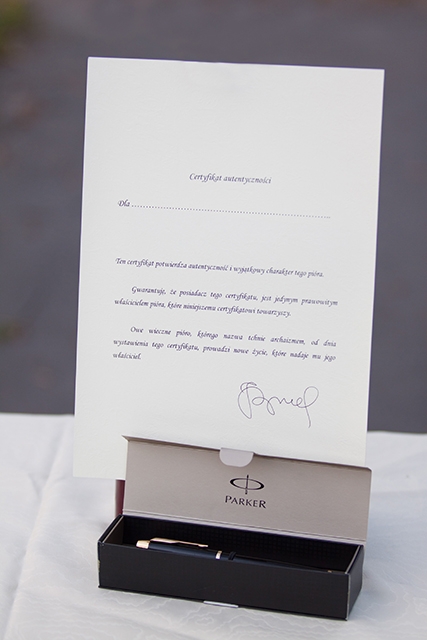 Certyfikat autentyczności
Dla ........................................................................
Ten certyfikat potwierdza autentyczność i wyjątkowy charakter tego pióra.
Gwarantuję, że posiadacz tego certyfikatu, jest jedynym prawowitym
właścicielem pióra, które niniejszemu certyfikatowi towarzyszy.
Owe wieczne pióro, którego nazwa tchnie archaizmem, od dnia
wystawienia tego certyfikatu, prowadzi nowe życie, które nadaje mu jego
właściciel.
PARKER